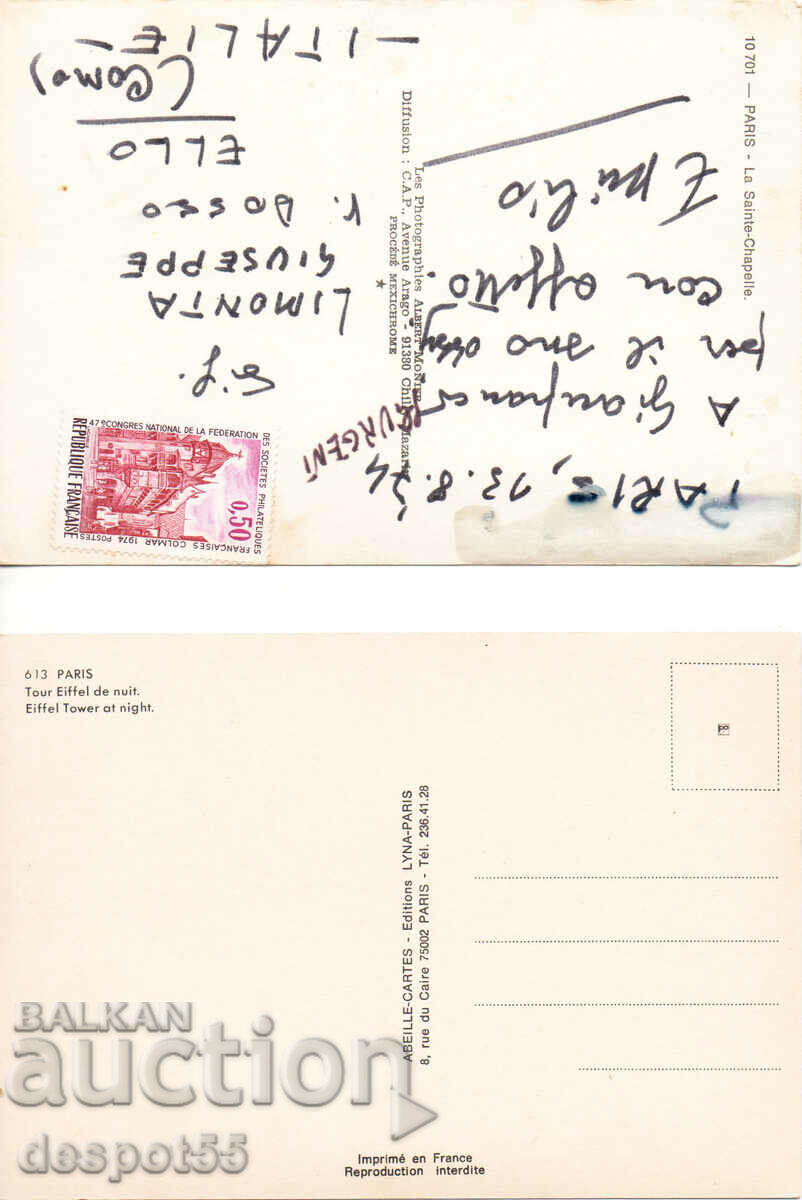 10 701 — PARIS - La Sainte-Chapelle.
PARIS, 13.8.74
A Gianfranco
per il suo
con affetto.
Emilio
Les Photographies ALBERT MONIER
Diffusion : C.A.P., Avenue Arago - 91380 Chilly-Mazarin
PROCÉDÉ MEXICHROME
URGENT
47e CONGRES NATIONAL DE LA FEDERATION
DES SOCIETES PHILATELIQUES
FRANÇAISES COLMAR 1974 POSTES
REPUBLIQUE FRANÇAISE
0,50
LIMONTA
GIUSEPPE
V. DOSSO
ELLO
(COMO)
— ITALIE —
613 PARIS
Tour Eiffel de nuit.
Eiffel Tower at night.
ABEILLE-CARTES - Editions LYNA-PARIS
8, rue du Caire 75002 PARIS - Tél. 236.41.28
Imprimé en France
Reproduction interdite
BALKAN
auction
despot55